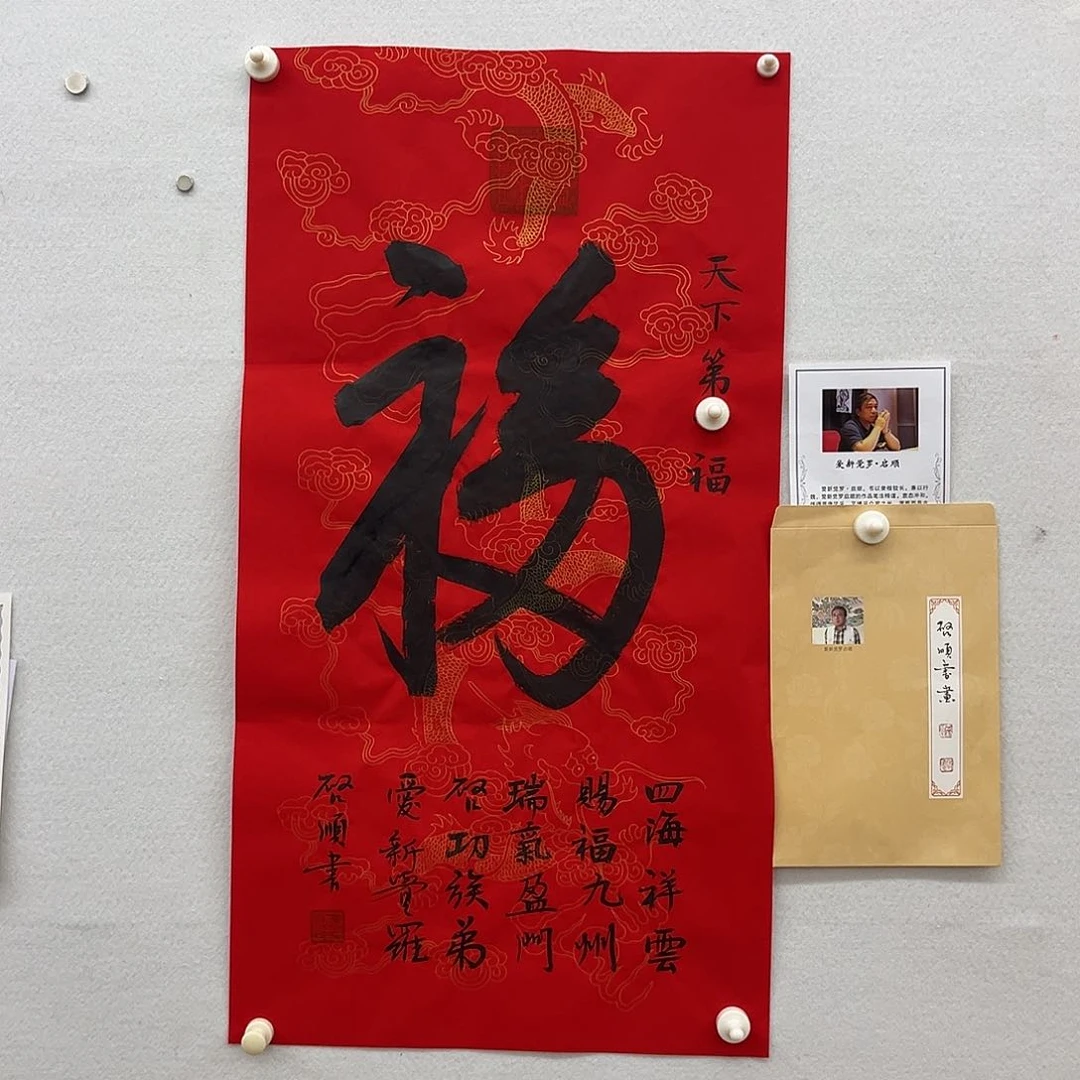 福
天下第
福
四海祥雲
賜福九州
瑞氣盈門
啓功族弟
愛新覺羅
啓順書
爱新觉罗·启顺
啓順書畫
爱新觉罗启顺